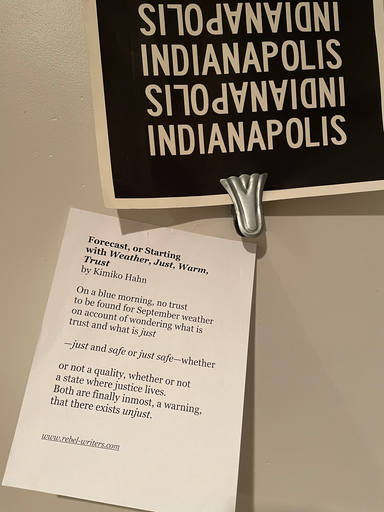 INDIANAPOLIS
INDIANAPOLIS
INDIANAPOLIS
INDIANAPOLIS
Forecast, or Starting
with Weather, Just, Warm,
Trust
by Kimiko Hahn
On a blue morning, no trust
to be found for September weather
on account of wondering what is
trust and what is just
—just and safe or just safe—whether
or not a quality, whether or not
a state where justice lives.
Both are finally inmost, a warning,
that there exists unjust.
www.rebel-writers.com